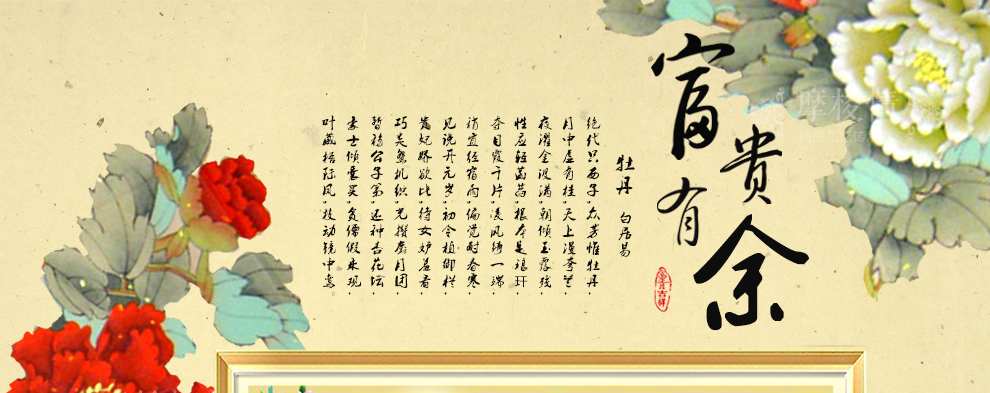 富贵有余
牡丹 白居易
绝代只西子,众芳惟牡丹.
月中虚有桂,天上漫夸兰.
夜濯金波满,朝倾玉露残.
性应轻菡萏,根本是琅玕.
夺目霞千片,凌风绮一端.
稍宜经宿雨,偏觉耐春寒.
见说开元岁,初令植御栏.
贵妃娇欲比,侍女妒羞看.
巧类鸳机织,光攒麝月团.
暂移公子第,还种杏花坛.
豪士倾囊买,贫儒假乘观.
叶藏梧际凤,枝动镜中鸾。